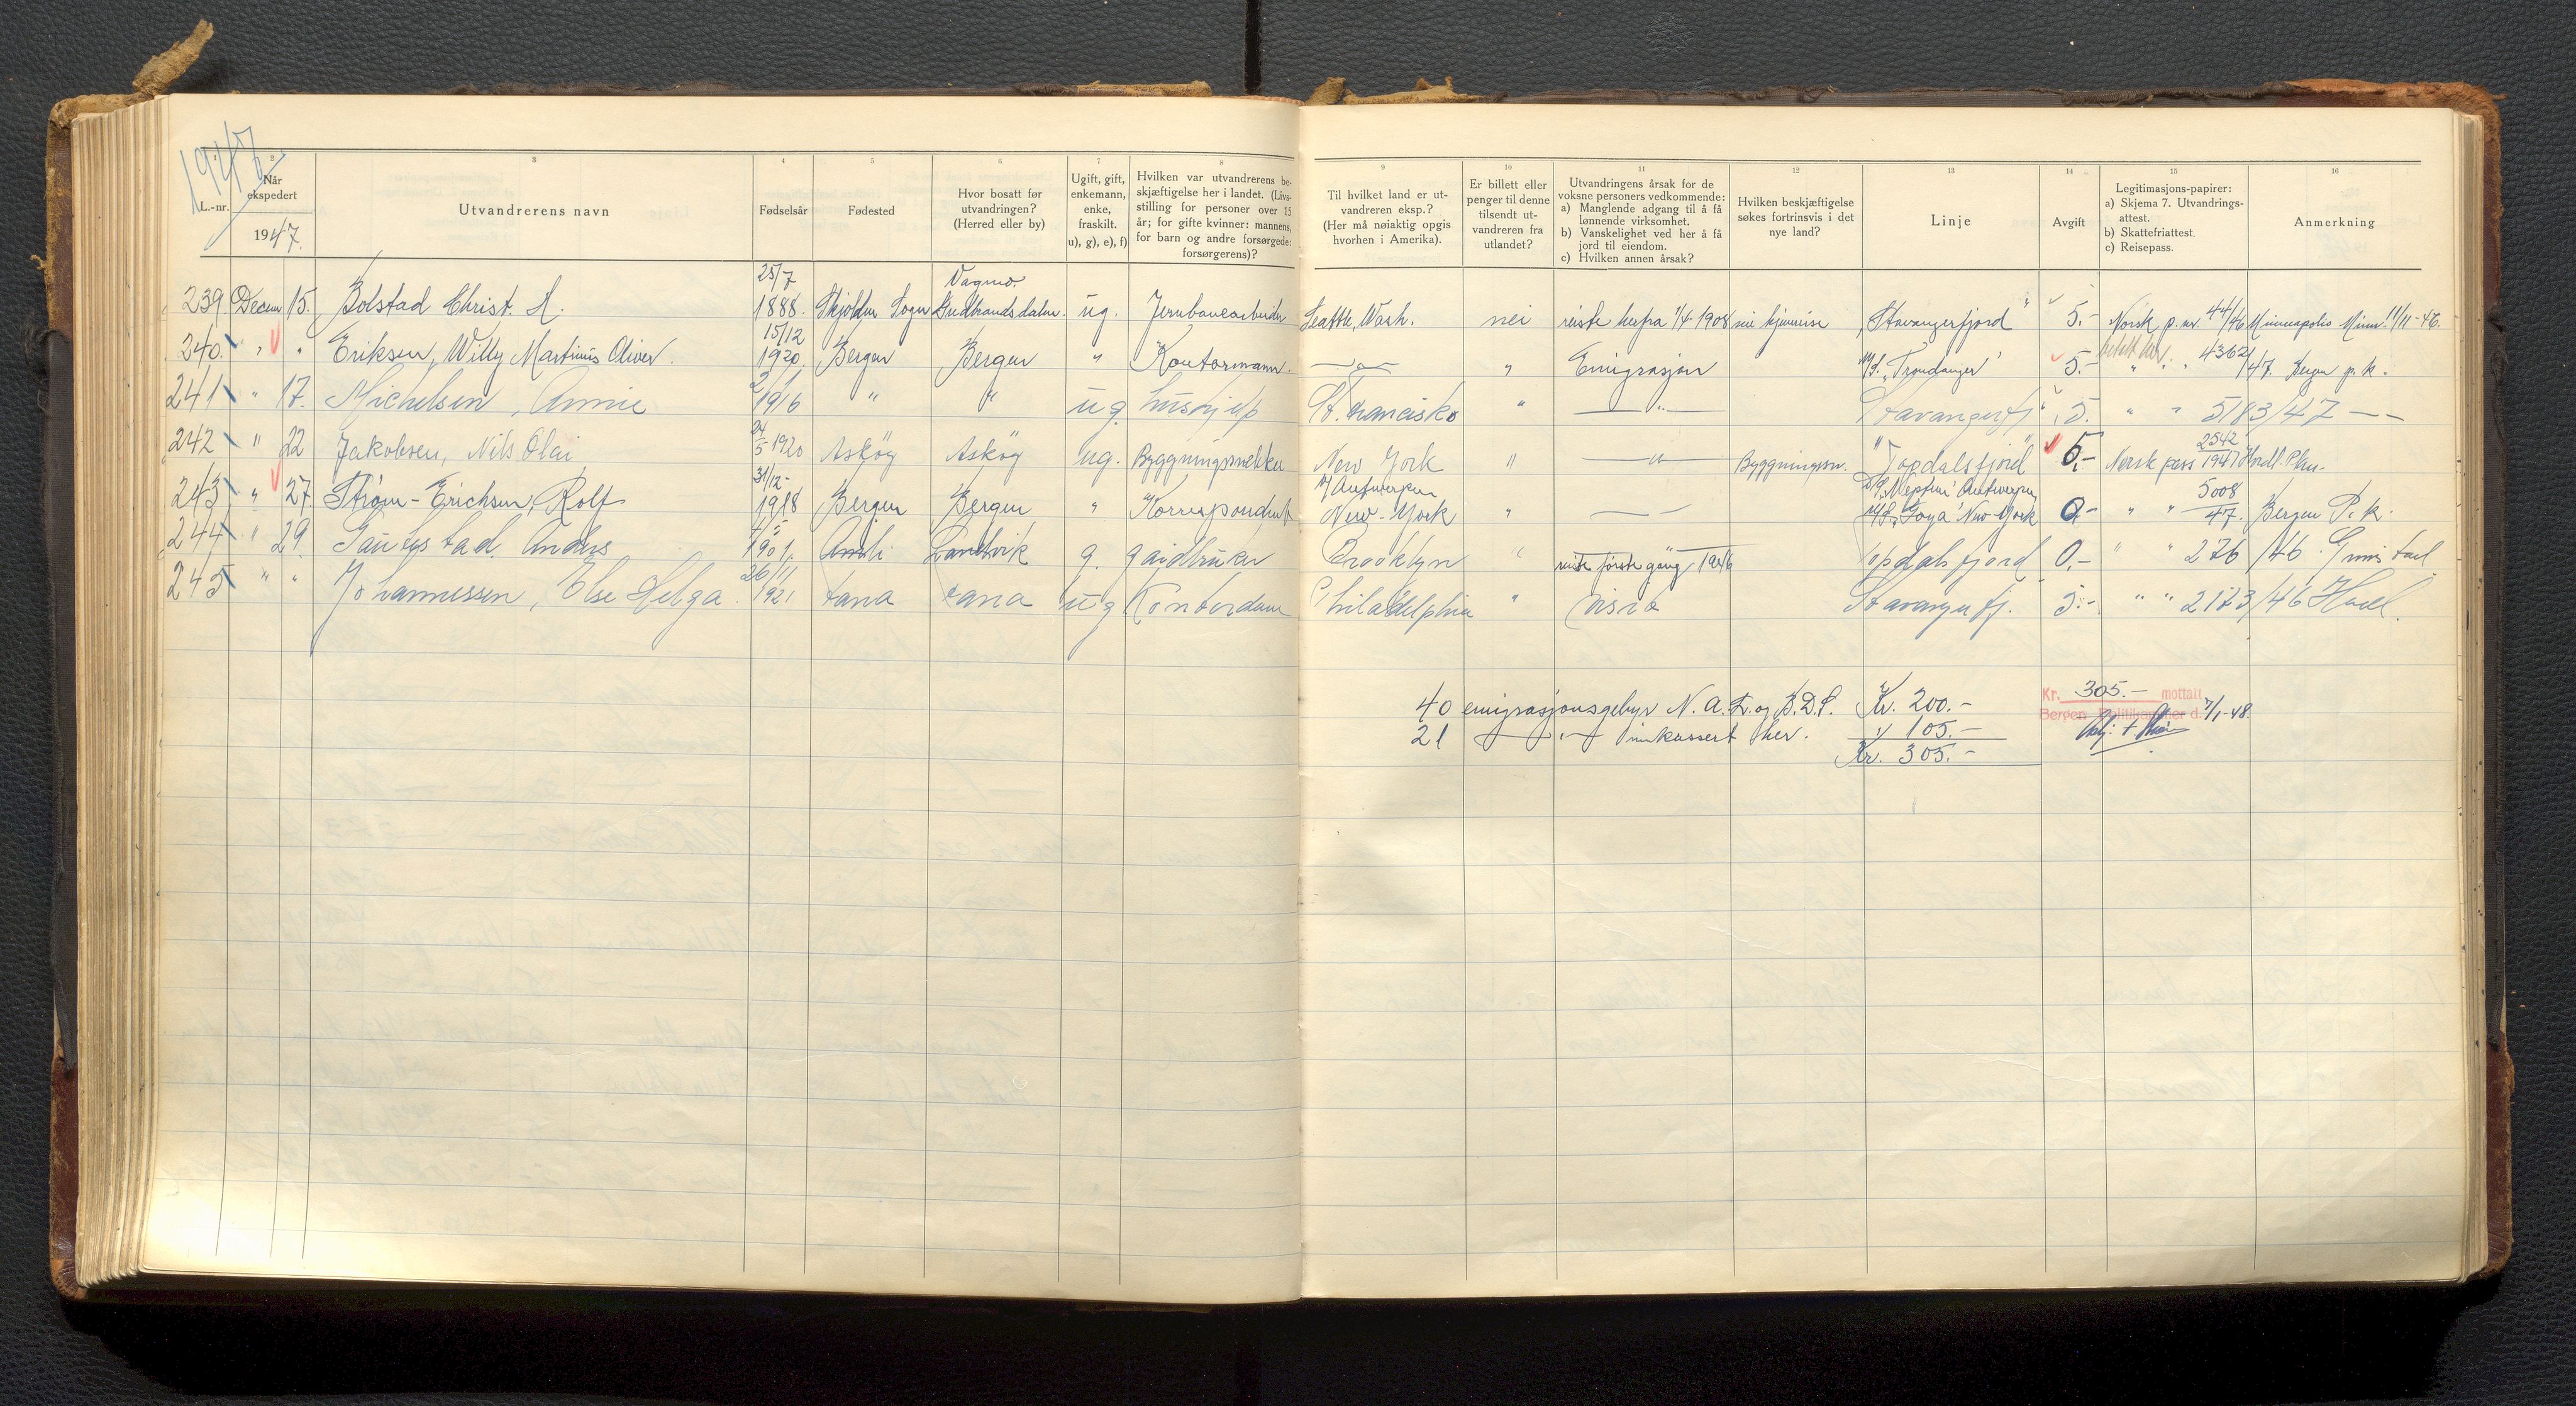 1947
1 2 3 4 5 6 7 8 9 10 11 12 13 14 15 16
L.-nr.
Når ekspedert
1947.
Utvandrerens navn
Fødselsår
Fødested
Hvor bosatt før utvandringen? (Herred eller by)
Ugift, gift, enkemann, enke, fraskilt. u), g), e), f)
Hvilken var utvandrerens beskjæftigelse her i landet. (Livsstilling for personer over 15 år; for gifte kvinner: mannens, for barn og andre forsørgede: forsørgerens)?
Til hvilket land er utvandreren eksp.? (Her må nøiaktig opgis hvorhen i Amerika).
Er billett eller penger til denne tilsendt utvandreren fra utlandet?
Utvandringens årsak for de voksne personers vedkommende:
a) Manglende adgang til å få lønnende virksomhet.
b) Vanskelighet ved her å få jord til eiendom.
c) Hvilken annen årsak?
Hvilken beskjæftigelse søkes fortrinsvis i det nye land?
Linje
Avgift
Legitimasjons-papirer:
a) Skjema 7. Utvandringsattest.
b) Skattefriattest.
c) Reisepass.
Anmerkning
239 Decem 15. Bolstad Christ. 25/7 1888. Skjolden Sogn Gudbrandsdalen. ug. Jernbanearbeider Seattle, Wash. nei reiste herfra 1/4 1908 "Stavangerfjord" 5.- Norsk p. nr. 44/46 Minneapolis Minn. 11/11-46.
240. " " Eriksen, Willy Martinus Oliver. 15/12 1920. Bergen Bergen " Kontormann. — " — " Emigrasjon M/S. "Trondanger" 5.- " " 4362/47. Bergen p.k.
241 " 17. Michelsen, Annie 2/1 1916 " " ug. hushjelp St. Francisko " — " — Stavangerfj. 5. " " 5183/47 — —
242 " 22 Jakobsen, Nils Olai 24/5 1920 Askøy Askøy ug. Byggningssnekker New York " — " — Byggningssn. "Topdalsfjord" 5,- Norsk pass 2542/1947 Hordl. Pkm.
243 " 27. Strøm-Erichsen, Rolf 31/12- 1918 Bergen Bergen " Korrespondent v/ Antwerpen New-York " — — D/S. "Neptun" Antwerpen M/S. "Goya" New-York 0,- " " 5008/47. Bergen P.k.
244 " 29. Anders 1901. Landvik g. gardbruker Brooklyn " reiste første gang 1926 Topdalsfjord 0,- " " 276/46. Grimstad
245 " " Johannessen, Else Helga 26/11 1921 Fana Fana ug. Kontordame Philadelphia " visit Stavangerfj. 5.- " " 2173/46 Hord.
40 emigrasjonsgebyr N.A.L. og B.D.S. Kr. 200.-
21 — " — innkassert her. " 105.-
Kr. 305.-
Kr. 305.- mottatt
Bergen Politikammer d. 7/1-48.